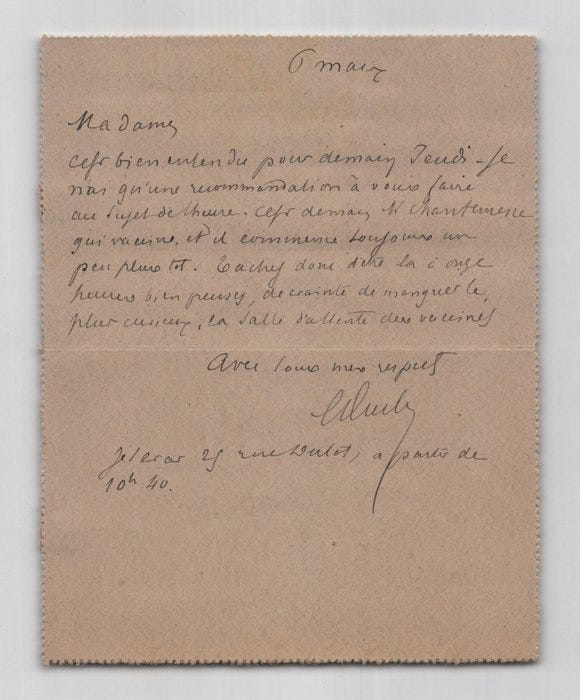 6 mars
Madame,
C'est bien entendu pour demain Jeudi - Je
n'ai qu'une recommandation à vous faire
au sujet de l'heure. C'est demain Mr Chantemesse
qui vaccine, et il commence toujours un
peu plus tôt. Tachez donc d'être là à onze
heures bien precises, de crainte de manquer le
plus curieux, la salle d'attente des vaccinés
Avec tous mes respects
Je serai 25 rue Dutot, à partir de
10h 40.